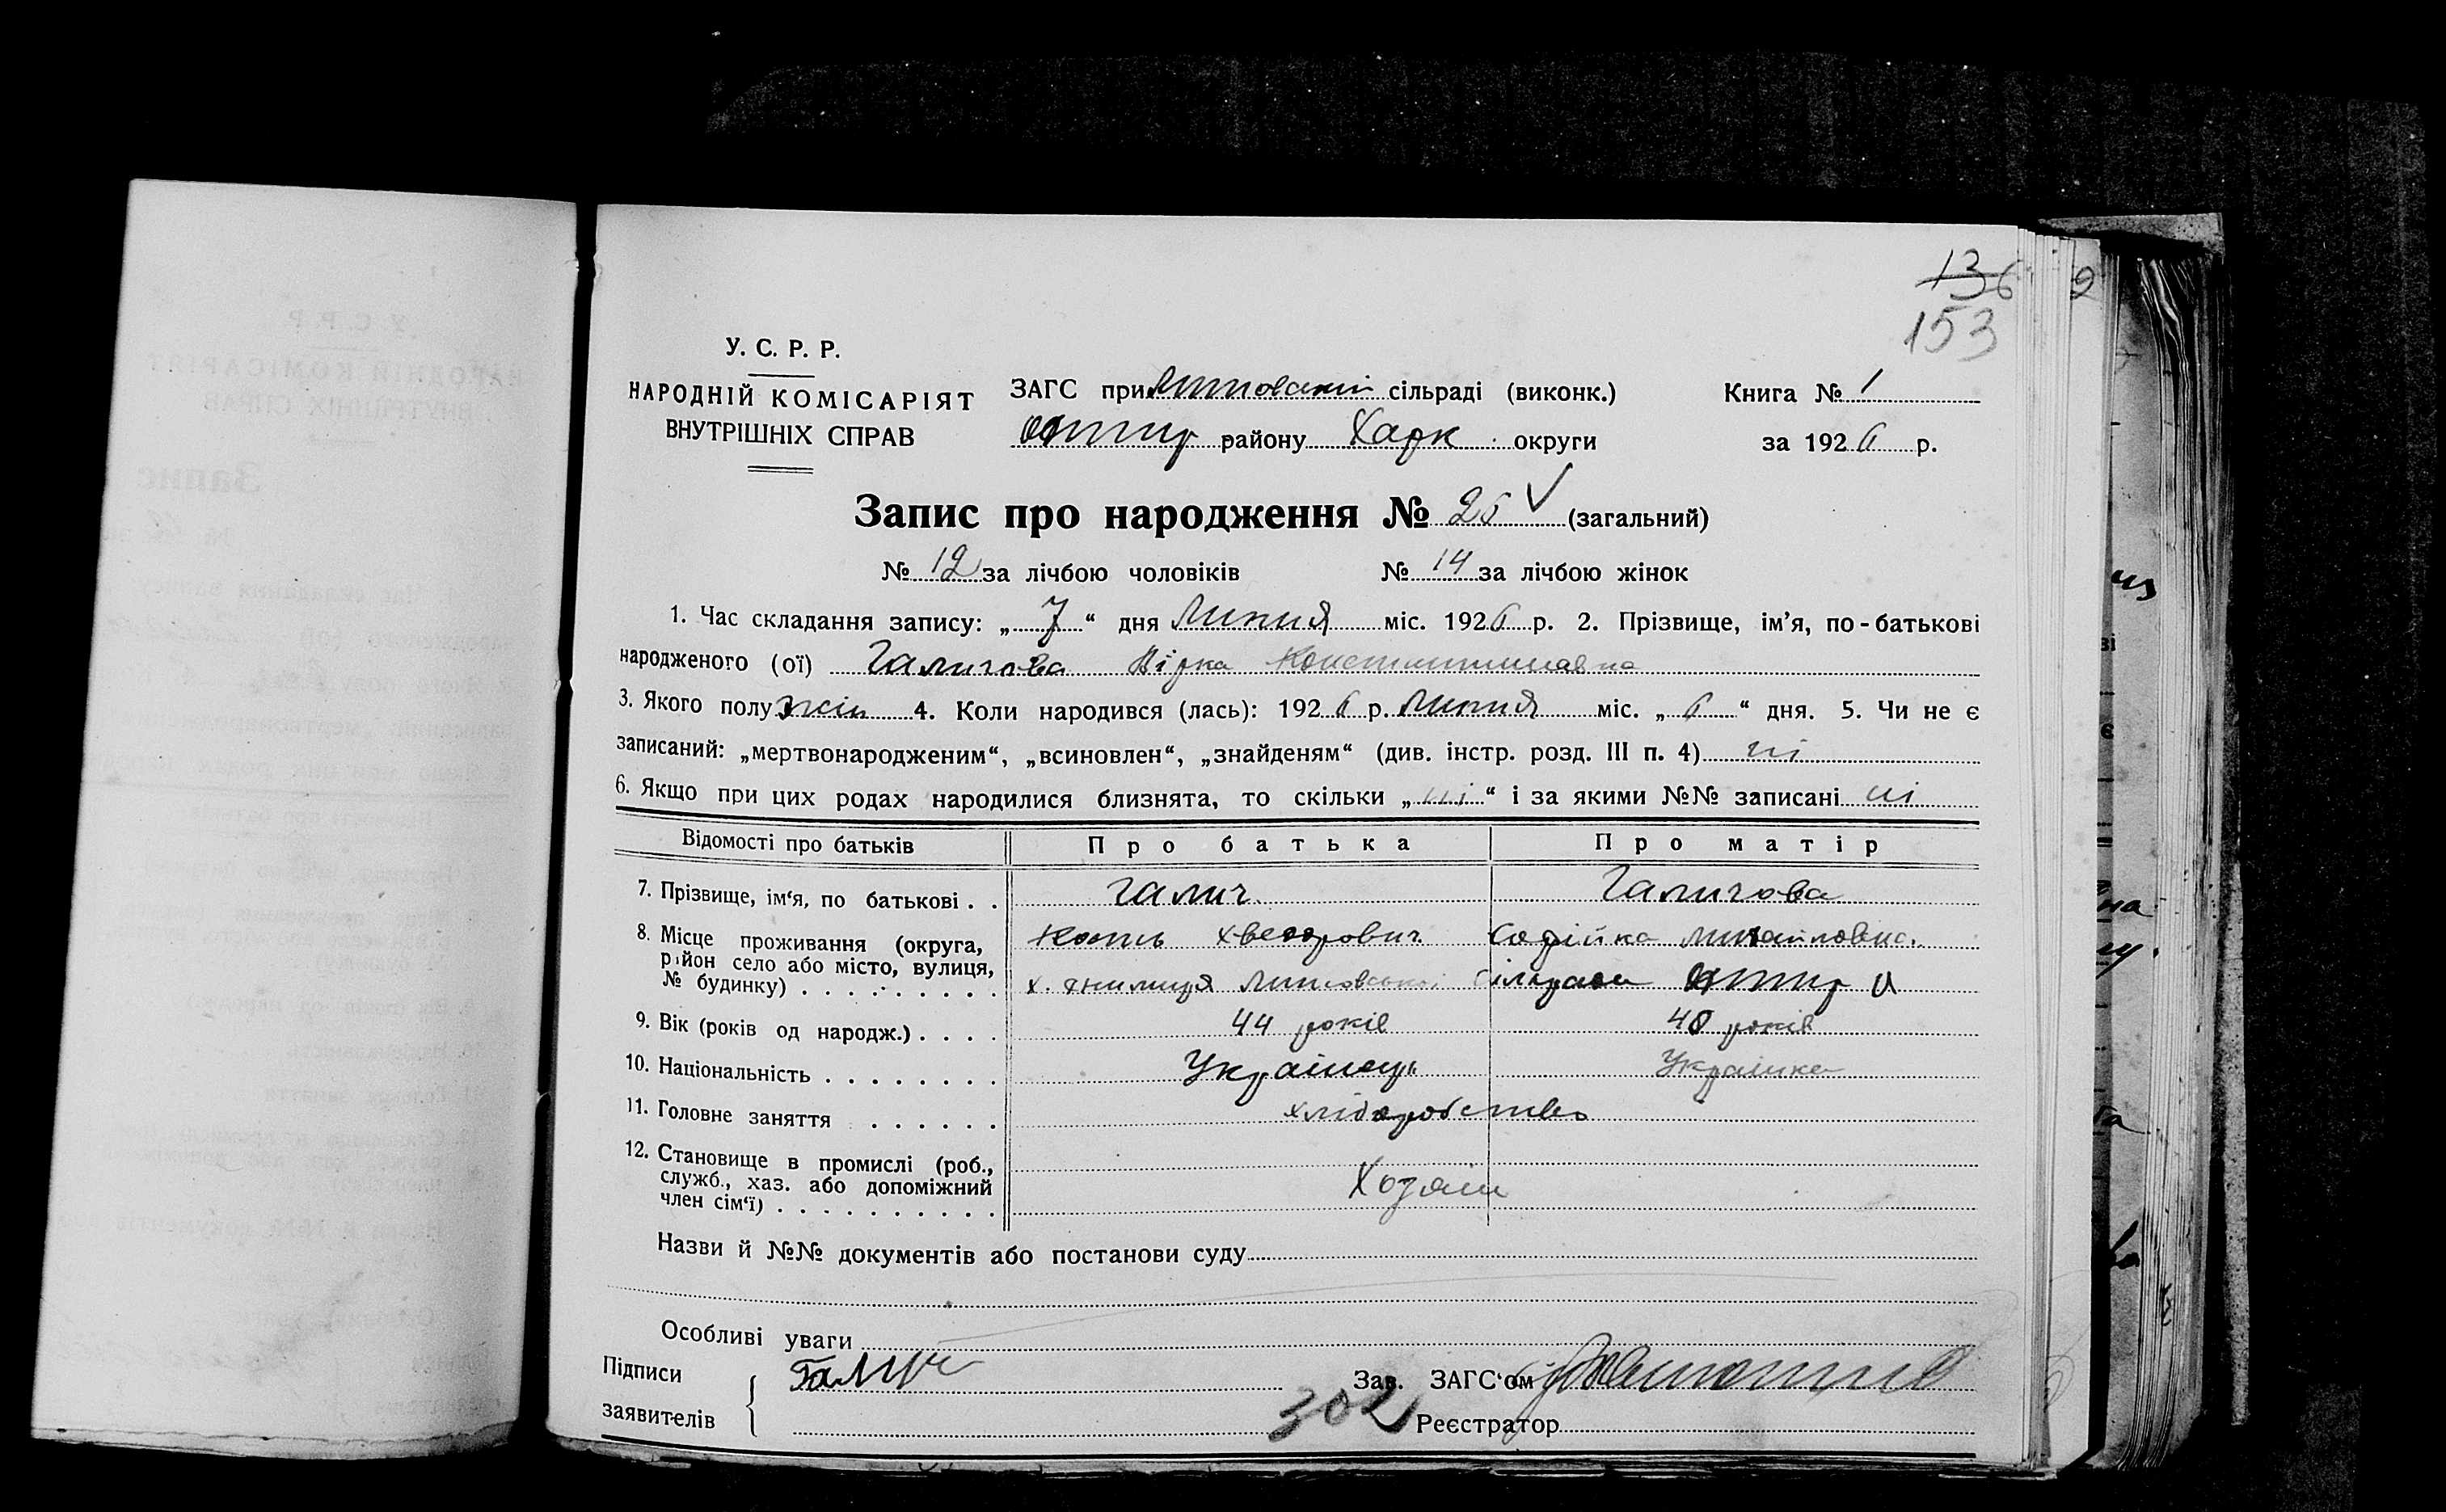 136
153
У. С. Р. Р.
НАРОДНІЙ КОМІСАРІЯТ
ВНУТРІШНІХ СПРАВ
ЗАГС при Липовській сільраді (виконк.)
району Харк округи
Книга № 1
за 1926 р.
Запис про народження № 26 (загальний)
№ 12 за лічбою чоловіків № 14 за лічбою жінок
1. Час складання запису: „7“ дня Липня міс. 1926 р. 2. Прізвище, ім’я, по-батькові
народженого (ої) Галичова Вірка Константиновна
3. Якого полу жін 4. Коли народився (лась): 1926 р. Липня міс. „6“ дня. 5. Чи не є
записаний: „мертвонародженим“, „всиновлен“, „знайденям“ (див. інстр. розд. III п. 4) ні
6. Якщо при цих родах народилися близнята, то скільки „ні“ і за якими №№ записані ні
Відомості про батьків Про батька Про матір
7. Прізвище, ім‘я, по батькові . . Галич Галичова
8. Місце проживання (округа, Кость Хведорович Софійка Михайловна
район село або місто, вулиця,
№ будинку) . . . . . . . . . х. Гнилиця Липовської Сільради
9. Вік (років од народж.) . . . . 44 років 40 років
10. Національність . . . . . . . . Українець Українка
11. Головне заняття . . . . . . хліборобство
12. Становище в промислі (роб.,
служб., хаз. або допоміжний Хозяїн
член сім‘ї) . . . . . . . . . .
Назви й №№ документів або постанови суду
Особливі уваги
Підписи Галич Зав. ЗАГС‘ом
заявителів 302 Реєстратор